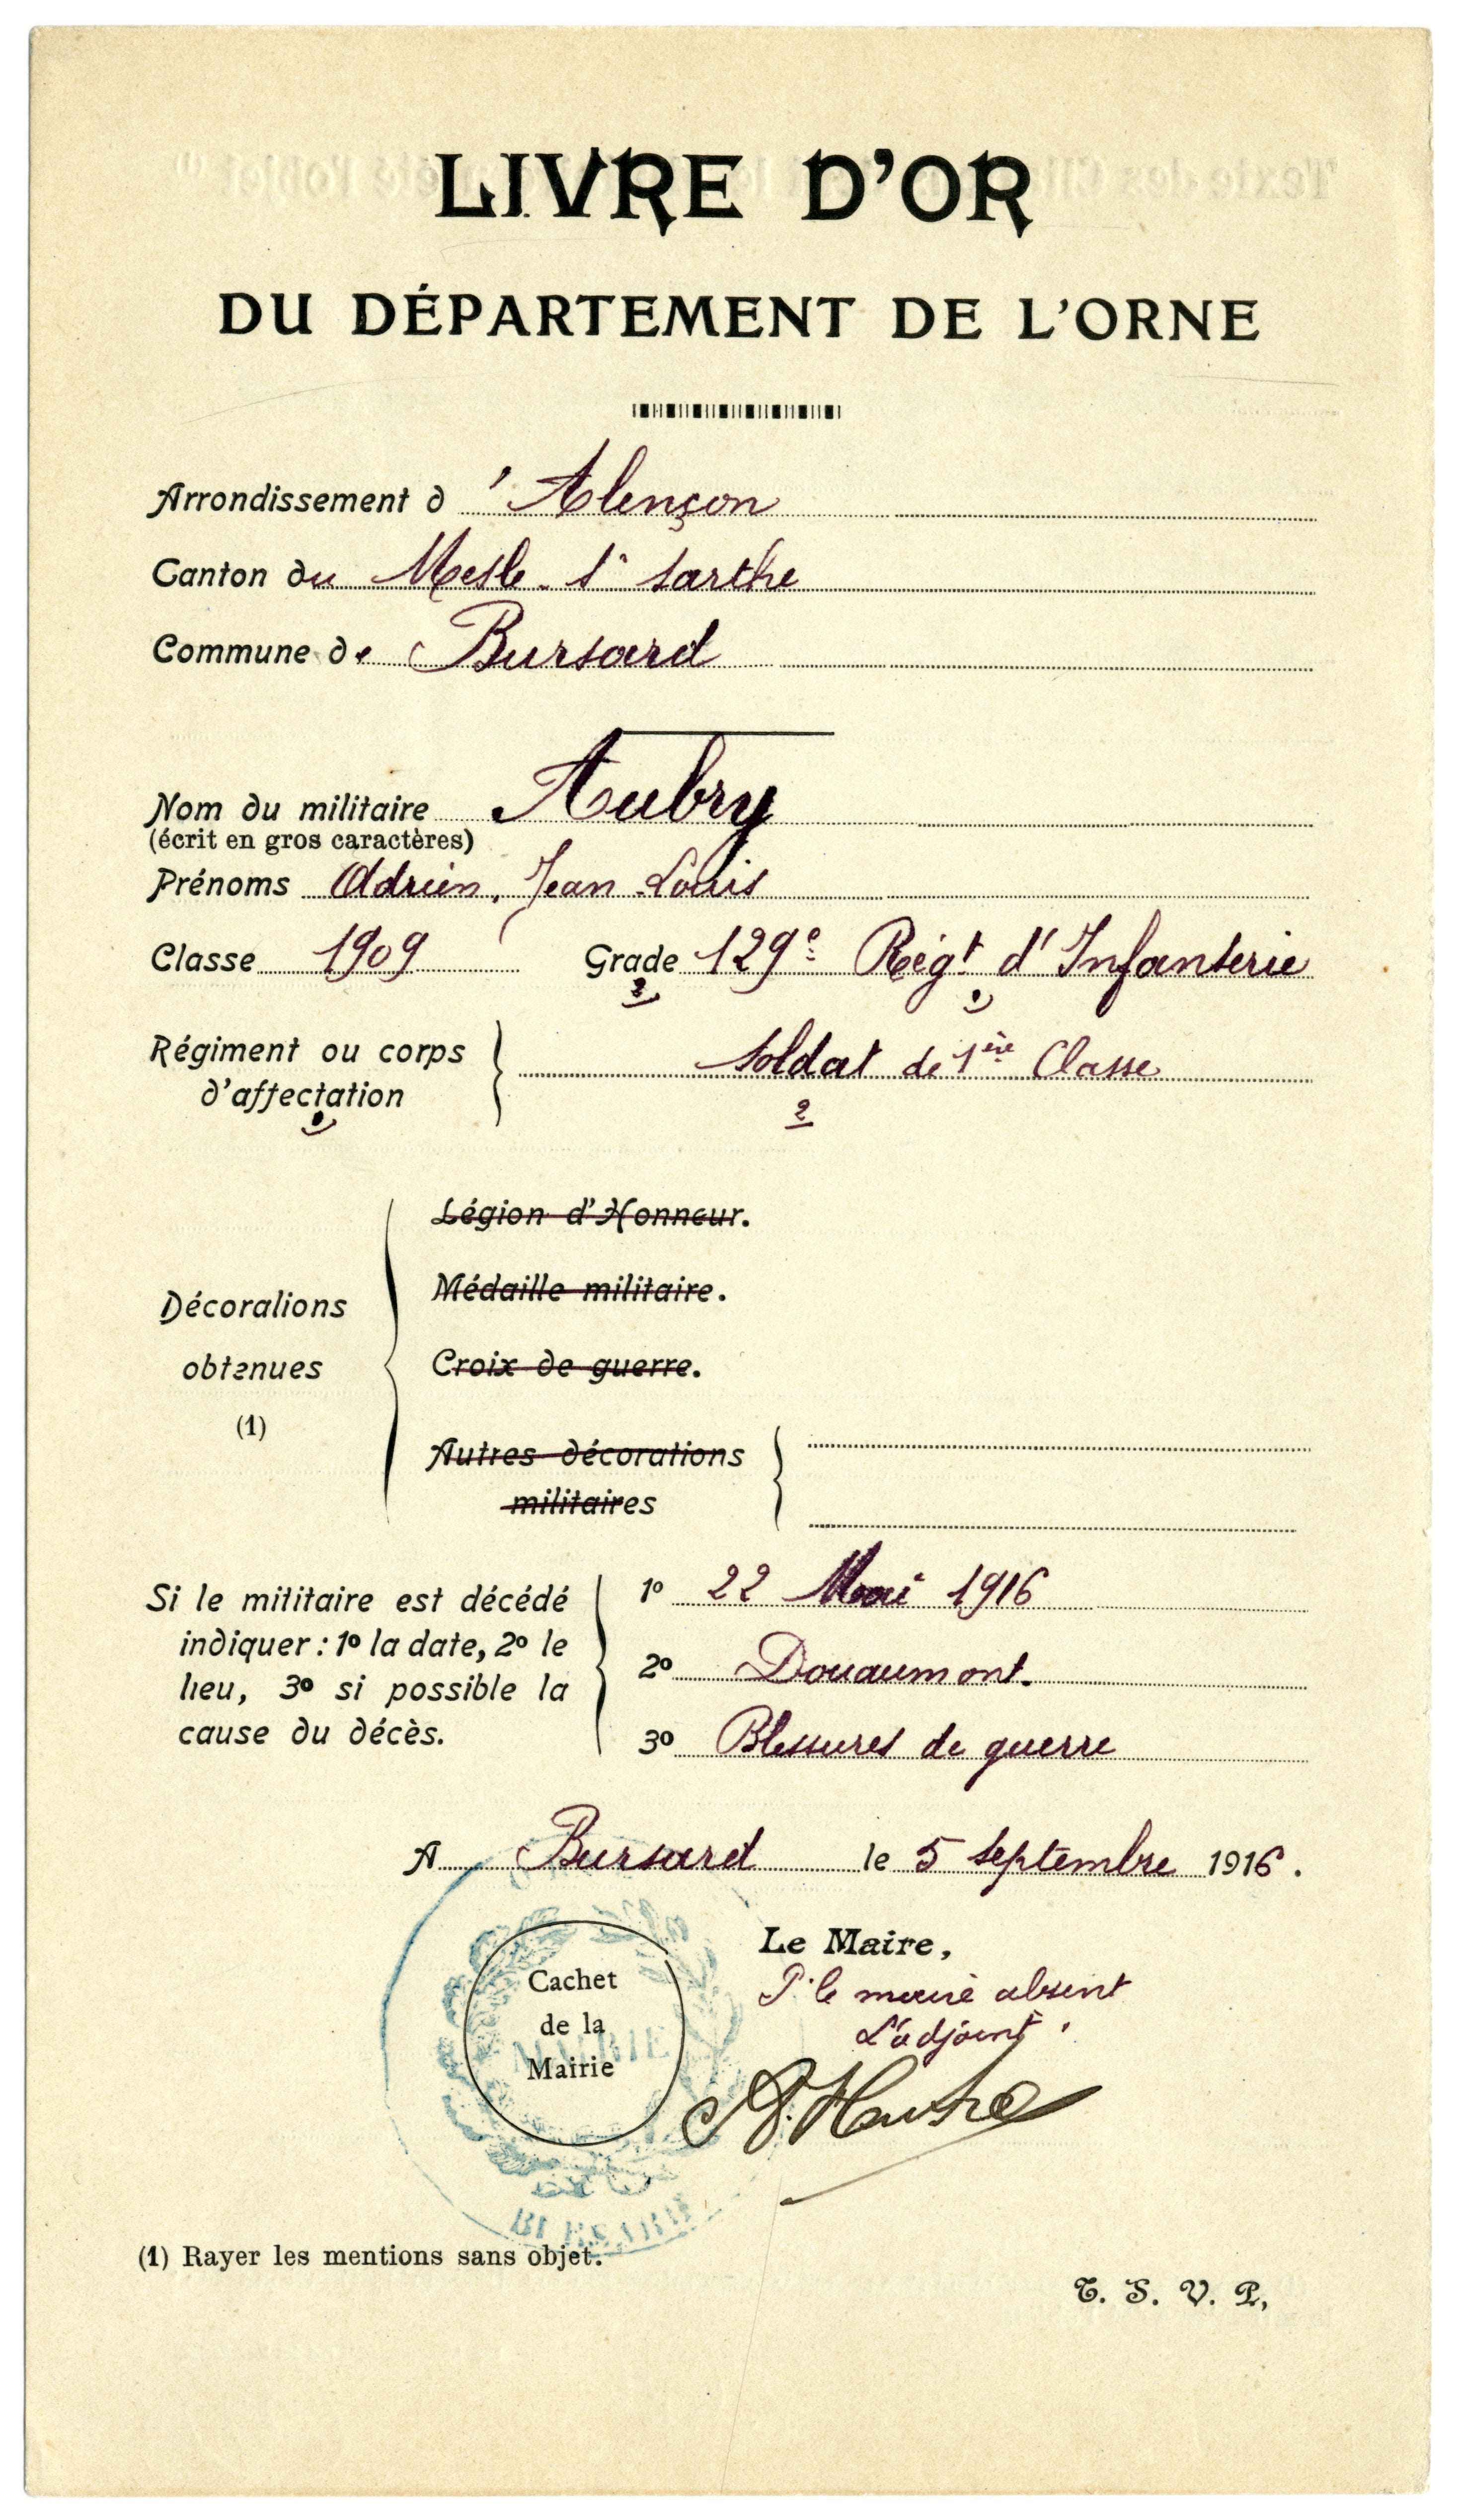 LIVRE D'OR
DU DÉPARTEMENT DE L'ORNE
Arrondissement d'Alençon
Canton du Mesle-s^r Sarthe
Commune de Bursard
Nom du militaire Aubry
(écrit en gros caractères)
Prénoms Adrien, Jean Louis
Classe 1909 Grade 129e Régt d'Infanterie
2 1
Régiment ou corps
d'affectation
soldat de 1ère Classe
1 2
Légion d'Honneur.
Médaille militaire.
Décorations
obtenues
(1)
Croix de guerre.
Autres décorations
militaires
Si le militaire est décédé
indiquer : 1º la date, 2º le
lieu, 3º si possible la
cause du décès.
1º 22 Mai 1916
2º Douaumont.
3º Blessures de guerre
A Bursard le 5 septembre 1916.
Le Maire,
P. le maire absent
L'adjoint,
Cachet
de la
Mairie
MAIRIE
BURSARD
(1) Rayer les mentions sans objet.
T. S. V. P,